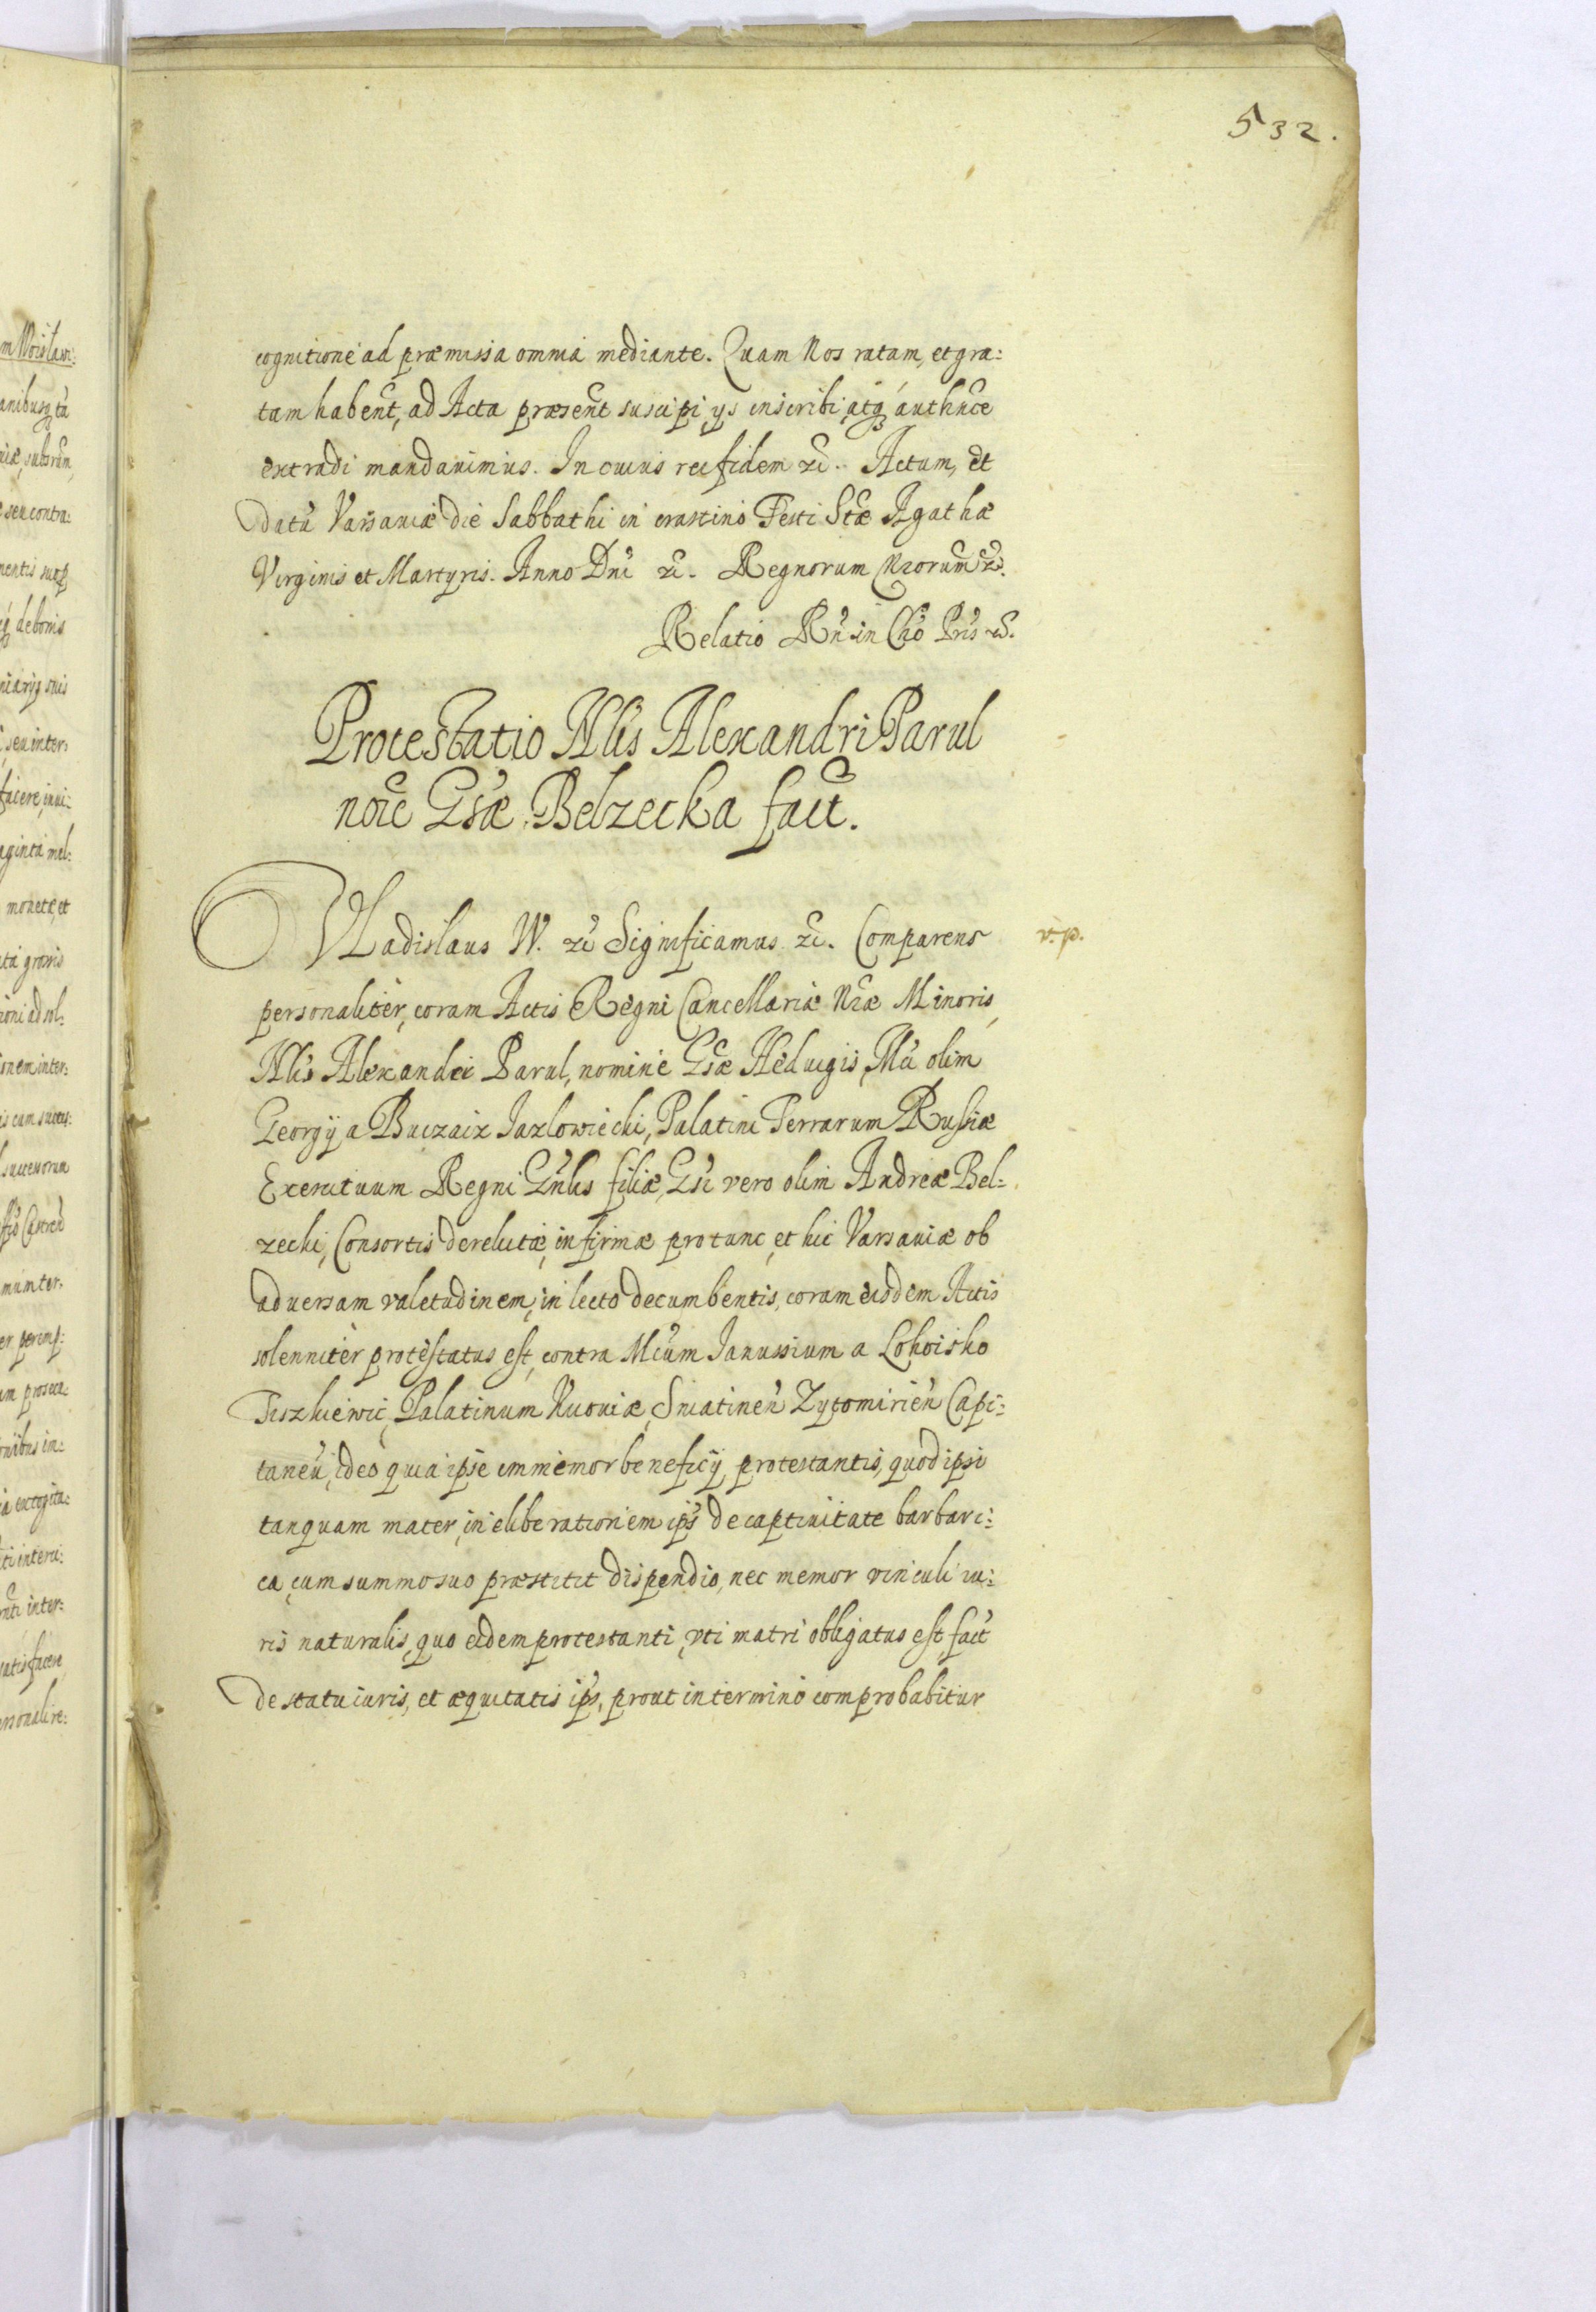 532.
cognitione ad præmissa omnia mediante. Quam Nos ratam, et gra:
tam habent, ad Acta præsent suscipi, ys inscribi, atq authnce
extradi mandauimus. In cuius rei fidem &c. Actum, et
datũ Varsauiæ die Sabbathi in crastino Festi Stæ Agathæ
Virginis et Martyris. Anno Dni &c. Regnorum Nrorum &c.
Relatio Rn in Chõ Pris &.
Protestatio Nlis Alexandri Parul
noie Gsæ Belzecka fact.
Vladislaus W. &c Significamus &c. Comparens
v. p.
personaliter, coram Actis Regni Cancellariæ Nræ Minoris,
Nlis Alexander Parul, nomine Gsæ Heduigis, Mci olim
Georgÿ a Buczacz Iazlowiecki, Palatini Terrarum Russiæ
Exercituum Regni Gnlis filiæ, Gsi vero olim Andreæ Bel:
zecki, Consortis derelictæ, infirmæ pro tunc, et hic Varsauiæ ob
aduersam valetudinem, in lecto decumbentis, coram eisdem Actis
solenniter protestatus est, contra Mcũm Ianussium a Lohoisko
Tiszkiewic, Palatinum Kiiouiæ, Sniatinen̄ Zytomirien̄ Capi:
taneũ, ideo quia ipse immemor beneficÿ, protestantis, quod ipsi
tanquam mater, in eliberationem ips̃ de captiuitate barbari:
ca, cum summo suo præstitit dispendio, nec memor vinculi iu:
ris naturalis, quo eidem protestanti, vti matri obligatus est, fact
de statu iuris, et æquitatis ips̃, prout in termino comprobabitur